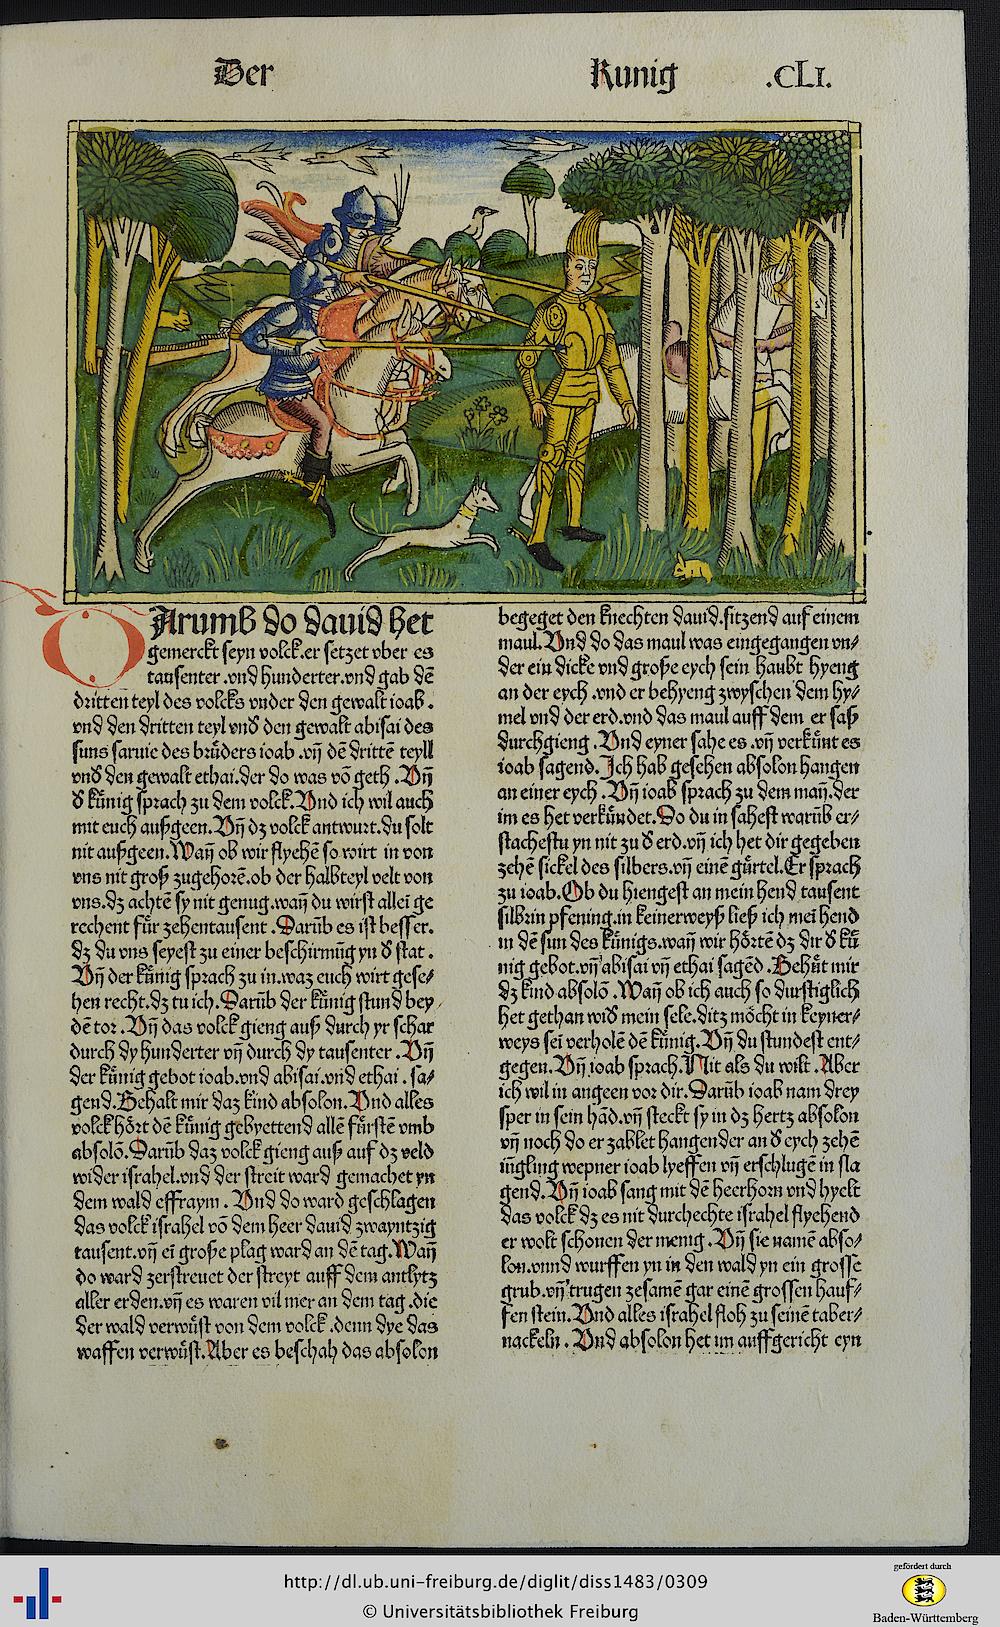 Der Kunig .CLI.
DArumb do dauid het
gemerckt seyn volck.er setzet vber es
tausenter.vnd hunderter.vnd gab dē
dritten teyl des volcks vnder den gewalt ioab.
vnd den dritten teyl vnd̓ den gewalt abisai des
suns saruie des brůders ioab.vñ dē drittē teyll
vnd̓ den gewalt ethai.der do was vō geth.Vñ
d̓ kůnig sprach zu dem volck.Vnd ich wil auch
mit euch außgeen.Vñ dz volck antwurt.du solt
nit außgeen.Wañ ob wir flyehē so wirt in von
vns nit groß zugehorē.ob der halbteyl velt von
vns.dz achtē sy nit genug.wañ du wirst allei ge
rechent fůr zehentausent.Darūb es ist besser.
dz du vns seyest zu einer beschirmūg yn d̓ stat.
Vñ der kůnig sprach zu in.waz euch wirt gese⸗
hen recht.dz tu ich.Darūb der kůnig stund bey
dē tor.Vñ das volck gieng auß durch yr schar
durch dy hunderter vñ durch dy tausenter.Vñ
der kůnig gebot ioab.vnd abisai.vnd ethai.sa⸗
gend.Behalt mir daz kind absolon.Vnd alles
volck hőrt dē kůnig gebyettend allē fůrstē vmb
absolō.Darūb daz volck gieng auß auf dz veld
wider israhel.vnd der streit ward gemachet yn
dem wald effraym.Vnd do ward geschlagen
das volck israhel vō dem heer dauid zwayntzig
tausent.vñ eī große plag ward an dē tag.Wañ
do ward zerstreuet der streyt auff dem antlytz
aller erden.vñ es waren vil mer an dem tag.die
der wald verwůst von dem volck.denn dye das
waffen verwůst.Aber es beschah das absolon
begeget den knechten dauid.sitzend auf einem
maul.Vnd do das maul was eingegangen vn⸗
der ein dicke vnd große eych sein haubt hyeng
an der eych.vnd er behyeng zwyschen dem hy⸗
mel vnd der erd.vnd das maul auff dem er saß
durchgieng.Vnd eyner sahe es.vñ verkůnt es
ioab sagend.Ich hab gesehen absolon hangen
an einer eych.Vñ ioab sprach zu dem mañ.der
im es het verkůndet.Do du in sahest warūb er⸗
stachestu yn nit zu d̓ erd.vñ ich het dir gegeben
zehē sickel des silbers.vñ einē gůrtel.Er sprach
zu ioab.Ob du hiengest an mein hend tausent
silbrin pfening.in keinerweyß ließ ich mei hend
in dē sun des kůnigs.wañ wir hőrtē dz dir d̓ ků
nig gebot.vñ abisai vñ ethai sagēd.Behůt mir
dz kind absolō.Wañ ob ich auch so durstiglich
het gethan wid̓ mein sele.ditz mőcht in keyner⸗
weys sei verholē dē kůnig.Vñ du stundest ent⸗
gegen.Vñ ioab sprach.Nit als du wilt.Aber
ich wil in angeen vor dir.Darūb ioab nam drey
sper in sein hād.vñ steckt sy in dz hertz absolon
vñ noch do er zablet hangender an d̓ eych zehē
iūgling wepner ioab lyeffen vñ erschlugē in sla
gend.Vñ ioab sang mit dē heerhorn vnd hyelt
das volck dz es nit durchechte israhel flyehend
er wolt schonen der menig.Vñ sie namē abso⸗
lon.vnnd wurffen yn in den wald yn ein grosse
grub.vñ trugen zesamē gar einē grossen hauf⸗
fen stein.Vnd alles israhel floh zu seinē taber⸗
nackeln.Vnd absolon het im auffgericht eyn
http://dl.ub.uni-freiburg.de/diglit/diss1483/0309
© Universitätsbibliothek Freiburg
gefördert durch
Baden-Württemberg